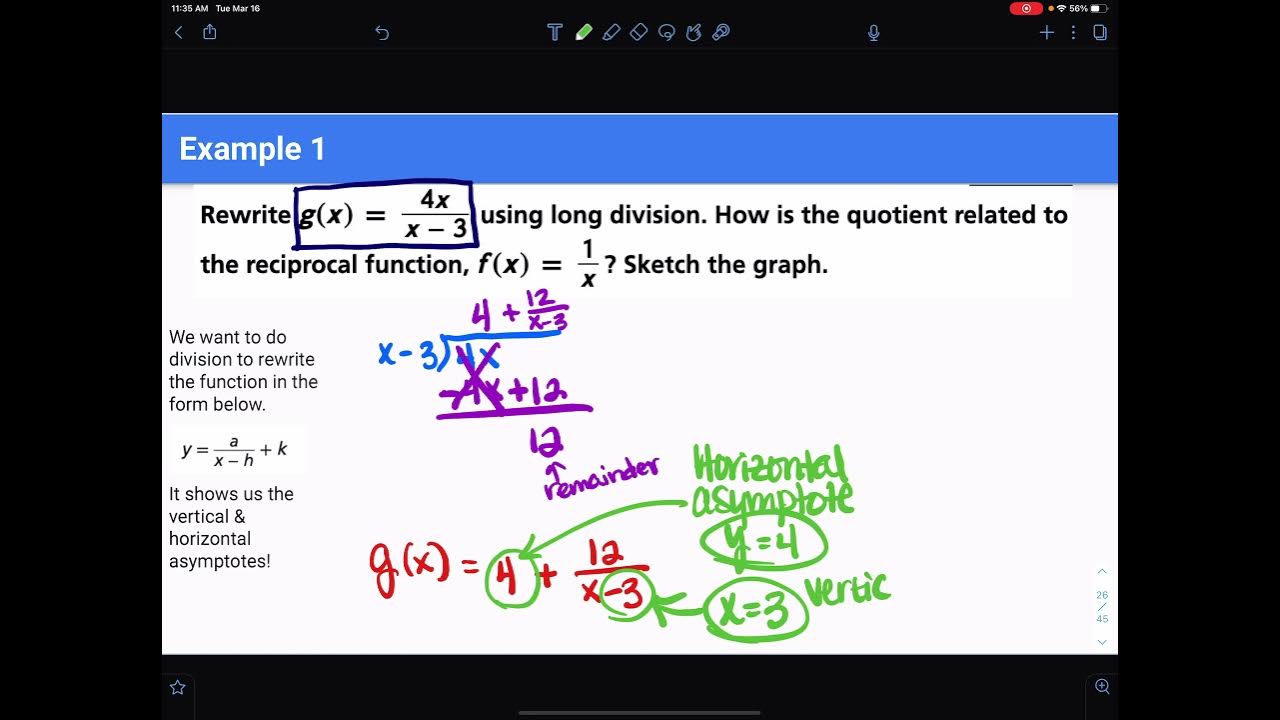 11:35 AM Tue Mar 16
56%
Example 1
Rewrite g(x) = 4x / x − 3 using long division. How is the quotient related to
the reciprocal function, f(x) = 1 / x? Sketch the graph.
We want to do
division to rewrite
the function in the
form below.
y = a / x − h + k
It shows us the
vertical &
horizontal
asymptotes!
4 + 12 / x-3
x-3)4x
-4x+12
12
remainder
Horizontal
asymptote
y=4
g(x) = 4 + 12 / x-3
x=3 vertic
26
/
45